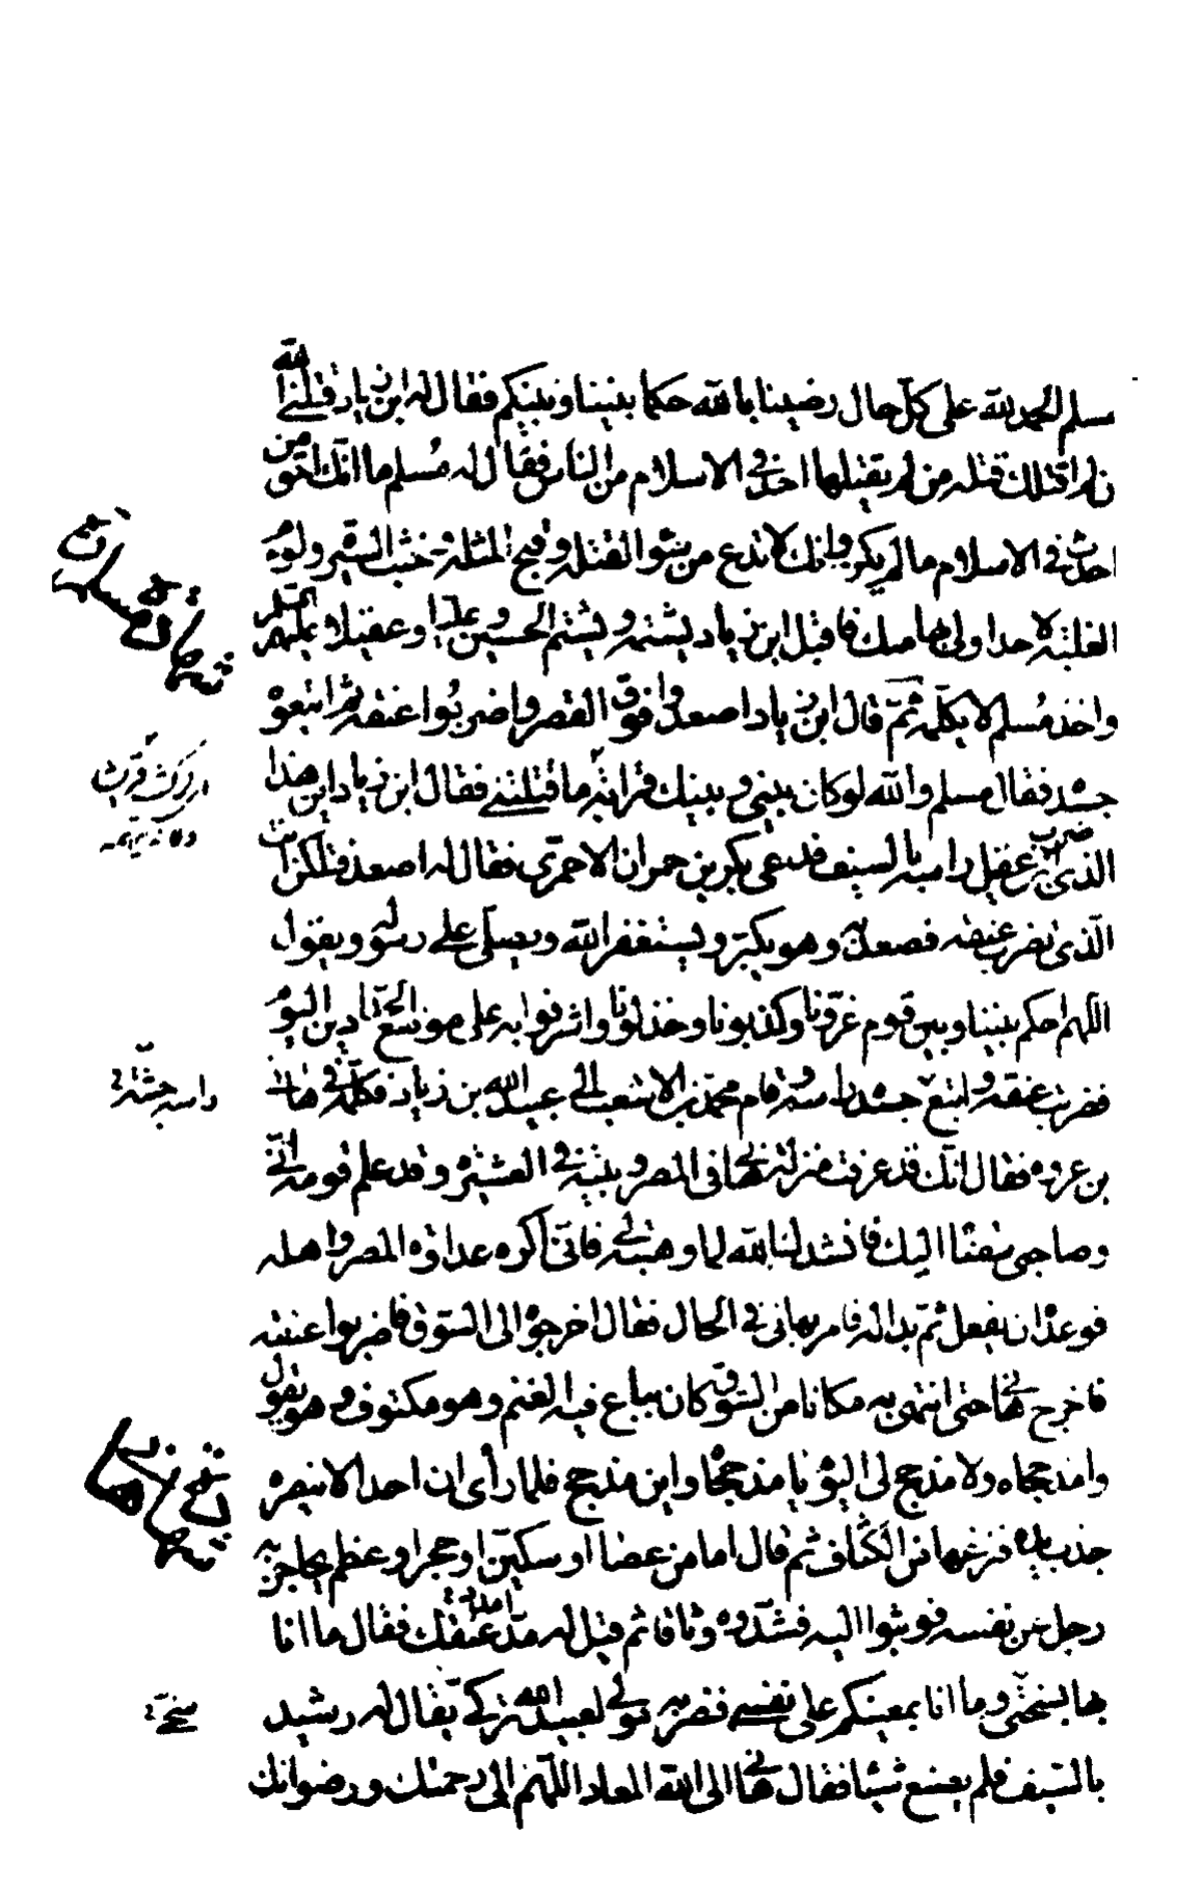 مسلم الحمد لله على كل حال رضينا بالله حكما بيننا وبينكم فقال له ابن زياد قتلني الله
ان لم اقتلك قتلة من لم يقتلها احد في الاسلام من الناس فقال له مسلم اما انك احق من
احدث في الاسلام ما لم يكن وانك لا تدع من سوء القتلة وقبح المثلة وخبث السيرة ولوم
الغلبة لاحد اولى بها منك فاقبل ابن زياد يشتمه ويشتم الحسين وعليا وعقيلا عليهم السلام
واخذ مسلم لا يكلمه ثم قال ابن زياد اصعدوا فوق القصر واضربوا عنقه ثم اتبعوه
جسده فقال مسلم والله لو كان بيني وبينك قرابة ما قتلتني فقال ابن زياد اين هذا
الذي ضرب ابن عقيل راسه بالسيف فدعي بكر بن حمران الاحمري فقال له اصعد فلتكن انت
الذي تضرب عنقه فصعد به وهو يكبر ويستغفر الله ويصلي على رسوله ويقول
اللهم احكم بيننا وبين قوم غرونا وكذبونا وخذلونا واشرفوا به على موضع الحذائين اليوم
فضربت عنقه واتبع جسده راسه وقام محمد بن الاشعث الى عبيد الله بن زياد فكلمه في هاني
بن عروة فقال انك قد عرفت منزلة هاني في المصر وبيته في العشيرة وقد علم قومه اني
وصاحبي سقناه اليك فانشدك الله لما وهبته لي فاني اكره عداوة المصر واهله
فوعده ان يفعل ثم بدا له فامر بهاني في الحال فقال اخرجوه الى السوق فاضربوا عنقه
فاخرج هاني حتى انتهى به مكانا من السوق كان يباع فيه الغنم وهو مكتوف وهو يقول
وا مذحجاه ولا مذحج لي اليوم يا مذحجاه واين مذحج فلما رأى ان احدا لا ينصره
جذب يده فنزعها من الكتاف ثم قال اما من عصا او سكين او حجر او عظم يحاجز به
رجل عن نفسه فوثبوا اليه فشدوه وثاقا ثم قيل له امدد عنقك فقال ما انا
بها بسخي وما انا بمعينكم على نفسي فضربه مولى لعبيد الله تركي يقال له رشيد
بالسيف فلم يصنع شيئا فقال هاني الى الله المعاد اللهم الى رحمتك ورضوانك